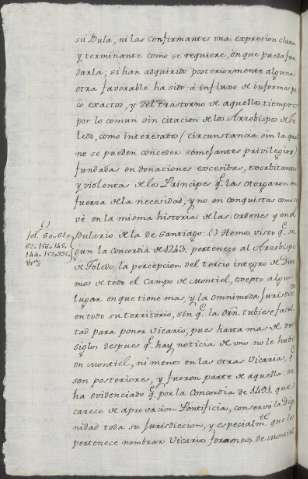 su Bula, ni las confirmantes una expresion clara
y terminante como se requiere, en que pueda fun
darla; si han adquirido posteriormente alguna
otra favorable ha sido á influxo de informes po
co exactos, y del trastorno de aquellos tiempos
por lo comun sin citacion de los Arzobispos de To
ledo, como interesados, circunstancia sin la que
no se pueden conceder semejantes privilegios
fundada en donaciones excesibas, exorbitantes
y violentas de los Principes q.e las otorgaron en
fuerza de la necesidad, y no en conquistas como se
vé en la misma historia de las ordenes y en el
Bulario de la de Santiago: Hemos visto q.e se
gun la concordia de 1243. pertenece al Arzobispo
de Toledo, la percepcion del tercio integro de Diez
mos de todo el campo de Montiel, excepto algun
lugar en que tiene mas, y la omnimoda Jurisdicc.n
en todo su territorio, sin q.e la orn. tubiese facul
tad para poner Vicario, pues hasta mas de dos
siglos despues q.e hay noticia de uno no le hubo
en Montiel, ni menos en las otras Vicarias, q.e
son posteriores, y fueron parte de aquella: se
ha evidenciado q.e por la Concordia de que
carece de aprovacion Pontificia, conservó la Dig
nidad toda su Jurisdiccion, y especialm.te el que le
pertenece nombrar Vicario foraneo de Montiel